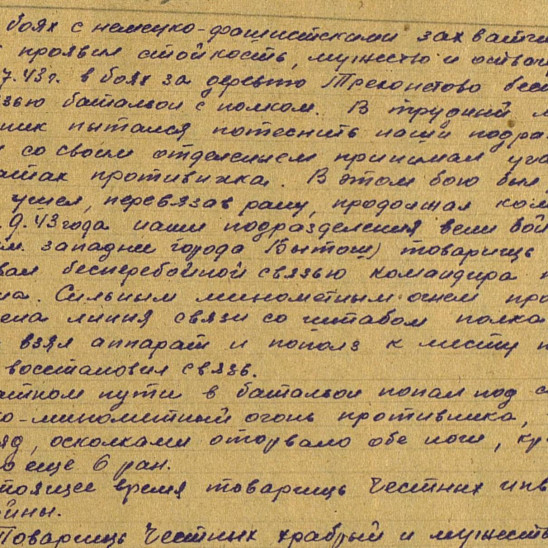 боях с немецко-фашистскими захватчи
проявил стойкость, мужество и отваг
7.43г. в боях за деревню Трехонетово бес
зью батальон с полком. В трудный м
ник пытался потеснить наши подра
со своим отделением принимал уча
атак противника. В этом бою был
ушел, перевязав рану, продолжал ком
9.43 года наши подразделения вели бои
км. западнее города Вытош) товарищь
вал бесперебойной связью командира
на. Сильным минометным огнем про
ена линия связи со штабом полка
взял аппарат и пополз к месту п
восстановил связь.
атном пути в батальон попал под с
о-минометный огонь противника,
яд, осколками оторвало обе ноги, кр
о еще 6 ран.
стоящее время товарищь Честных инв
йны.
Товарищь Честных храбрый и мужеств